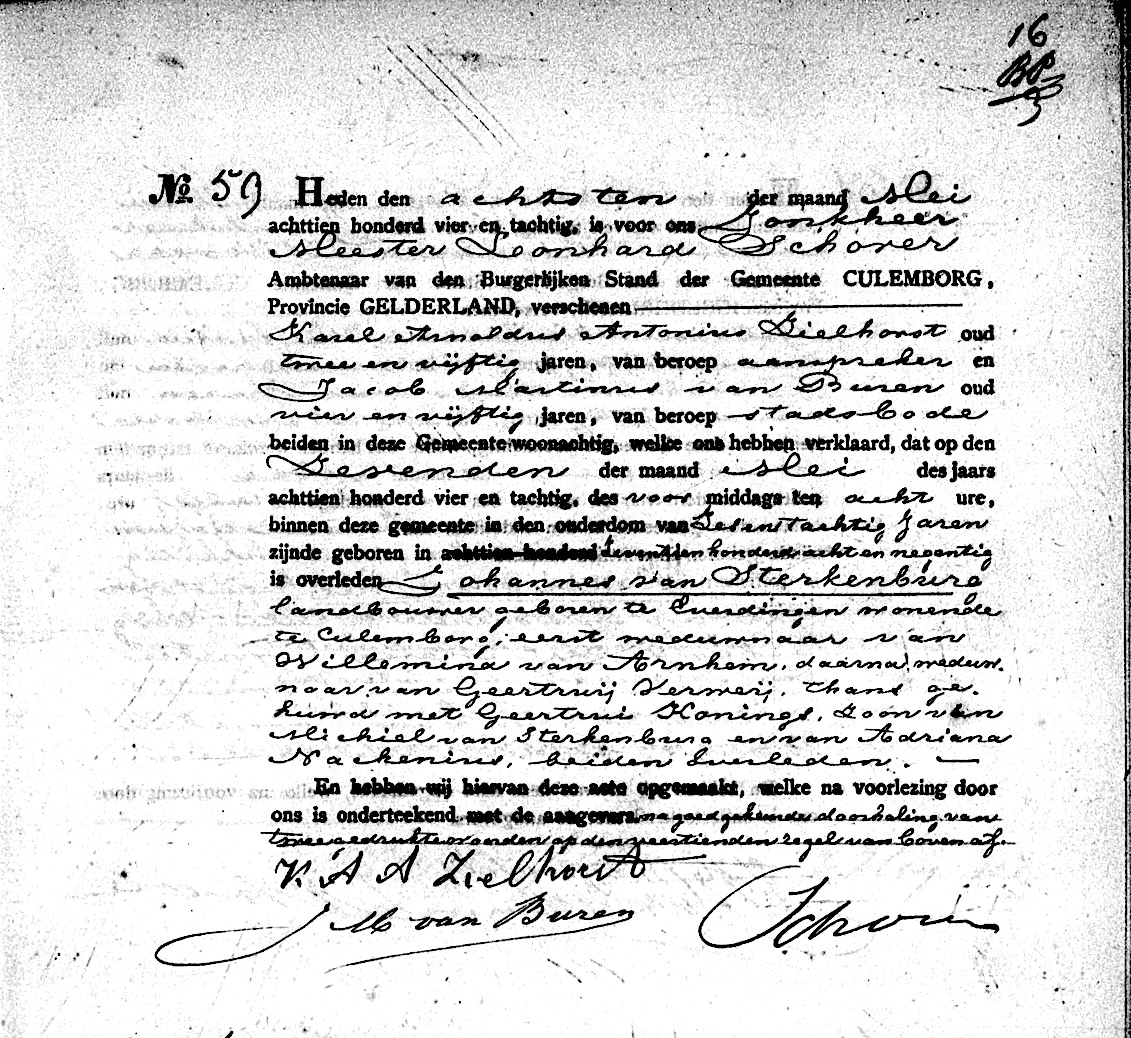 16
BP
No. 59 Heden den achtsten der maand Mei
achttien honderd vier en tachtig, is voor ons Jonkheer
Meester Leonhard Schorer
Ambtenaar van den Burgerlijken Stand der Gemeente CULEMBORG,
Provincie GELDERLAND, verschenen
Karel Arnoldus Antonius Zielhorst oud
twee en vijftig jaren, van beroep aanspreker en
Jacob Martinus van Buren oud
vier en vijftig jaren, van beroep stadsbode
beiden in deze Gemeente woonachtig, welke ons hebben verklaard, dat op den
Zevenden der maand Mei des jaars
achttien honderd vier en tachtig, des voor middags ten acht ure,
binnen deze gemeente in den ouderdom van Zes en tachtig Jaren
zijnde geboren in achttien honderd Zeventien honderd acht en negentig
is overleden Johannes van Sterkenburg
landbouwer geboren te Everdingen wonende
te Culemborg, eerst weduwnaar van
Willemina van Arnhem, daarna weduw.
naar van Geertruij Verweij, thans ge.
huwd met Geertrui Konings, zoon van
Michiel van Sterkenburg en van Adriana
Nackenius, beiden overleden.
En hebben wij hiervan deze acte opgemaakt, welke na voorlezing door
ons is onderteekend met de aangevers na goedgekeurde doorhaling van
twee gedrukte woorden op den veertienden regel van boven af.
K A A Zielhorst
J M van Buren Schorer